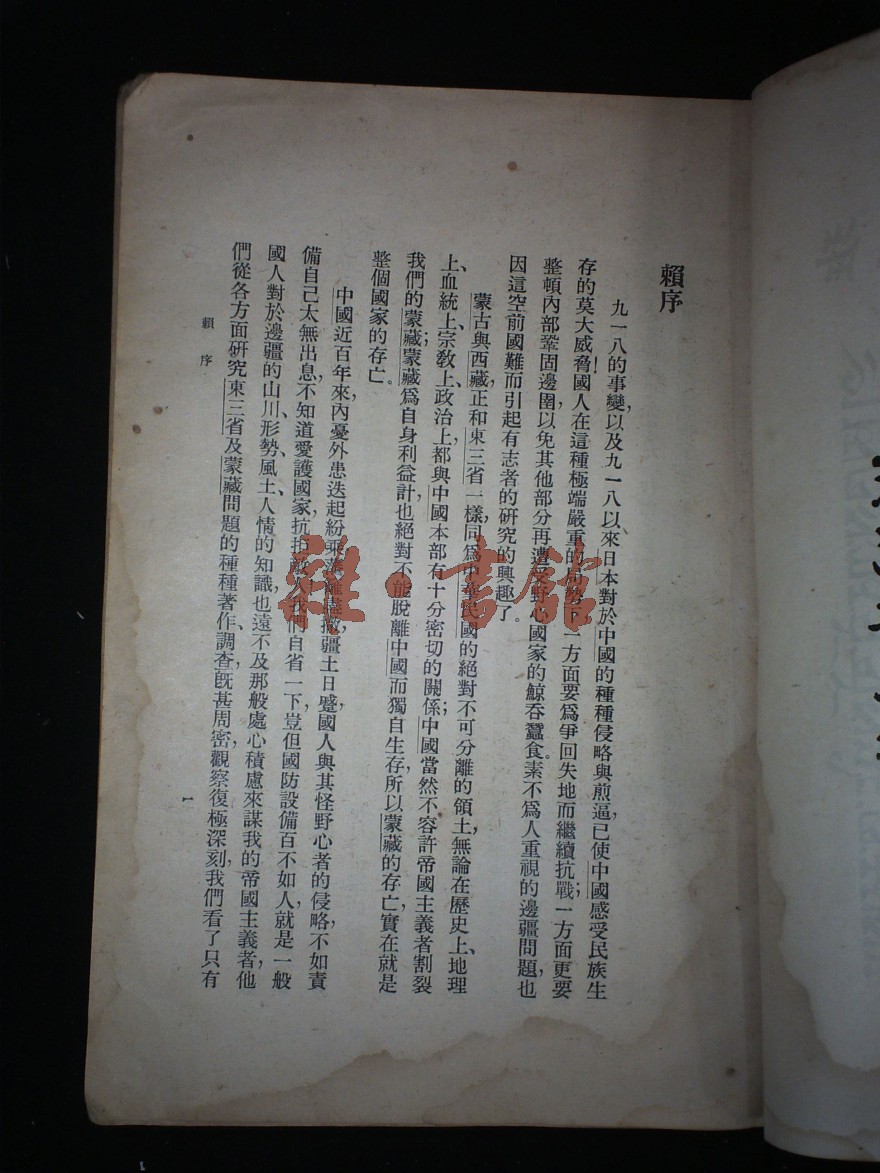 賴序
九一八的事變,以及九一八以來日本對於中國的種種侵略與煎逼,已使中國感受民族生
存的莫大威脅!國人在這種極端嚴重的局勢下,一方面要爲爭回失地而繼續抗戰;一方面更要
整頓內部鞏固邊圉以免其他部分再遭受野心國家的鯨吞蠶食。素不爲人重視的邊疆問題,也
因這空前國難而引起有志者的研究的興趣了。
蒙古與西藏,正和東三省一樣,同爲中華民國的絕對不可分離的領土,無論在歷史上、地理
上、血統上、宗教上、政治上,都與中國本部有十分密切的關係;中國當然不容許帝國主義者割裂
我們的蒙藏;蒙藏爲自身利益計,也絕對不能脫離中國而獨自生存。所以蒙藏的存亡,實在就是
整個國家的存亡。
中國近百年來,內憂外患,迭起紛乘,藩籬盡撤,疆土日蹙,國人與其怪野心者的侵略,不如責
備自己太無出息,不知道愛護國家,抗拒敵人。我們自省一下,豈但國防設備百不如人,就是一般
國人對於邊疆的山川、形勢、風土、人情的知識,也遠不及那般處心積慮來謀我的帝國主義者,他
們從各方面研究東三省及蒙藏問題的種種著作、調查,旣甚周密,觀察復極深刻,我們看了只有
賴序
一
雜·書館